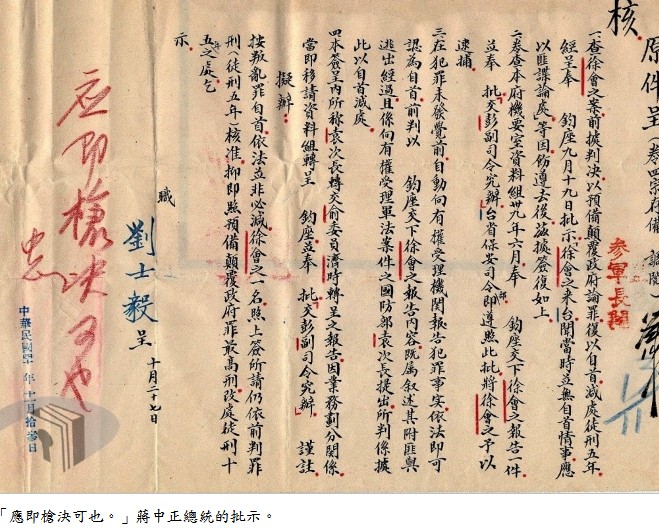 原件呈(卷四宗存備
核
參軍長閱
一查徐會之案前據判決以預備顛覆政府論罪復以自首減處徒刑五年
經呈奉 鈞座九月十九日批示徐會之來台當時並無自首情事應
以匪諜論處等因飭遵去後茲據簽復如上
二卷查本府機要室資料組卅九年六月奉 鈞座交下徐會之報告一件
並奉 批交彭副司令究辦台省保安司令部即遵照此批將徐會之予以
逮捕
三在犯罪未發覺前自動向有權受理機關報告犯罪事实依法即可
認為自首前判以 鈞座交下徐會之報告內容既属叙述其附匪與
逃出經過且係向有權受理軍法案件之國防部袁次長提出所判係據
此以自首減處
四本簽呈內所稱袁次長轉交俞委員濟時轉呈之報告因業務劃分關係
當即移請資料組轉呈 鈞座並奉 批交彭副司令究辦 謹註
擬辦
按叛亂罪自首依法並非必減徐會之一名照上簽所請仍依前判罪
刑(徒刑五年)核准抑即照預備顛覆政府罪最高刑改處徒刑十
五年之處乞
示
職 劉士毅 呈 十月二十七日
应即槍决可也
中華民國 年十一月拾 日
「應即槍決可也。」蔣中正總統的批示。